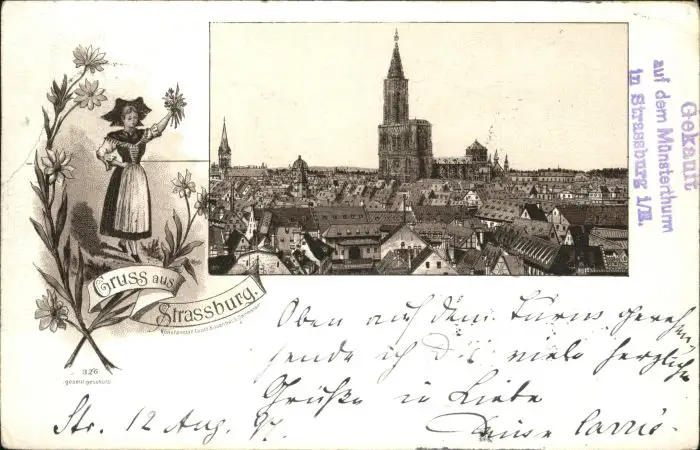 Gruss aus
Strassburg.
326
gesetzl. geschützt
Gekauft
auf dem Münsterthurm
in Strassburg i/E.
Oben auf dem Turm
sende ich viele herzliche
Grüße in Liebe
Str. 12 Aug. 97.